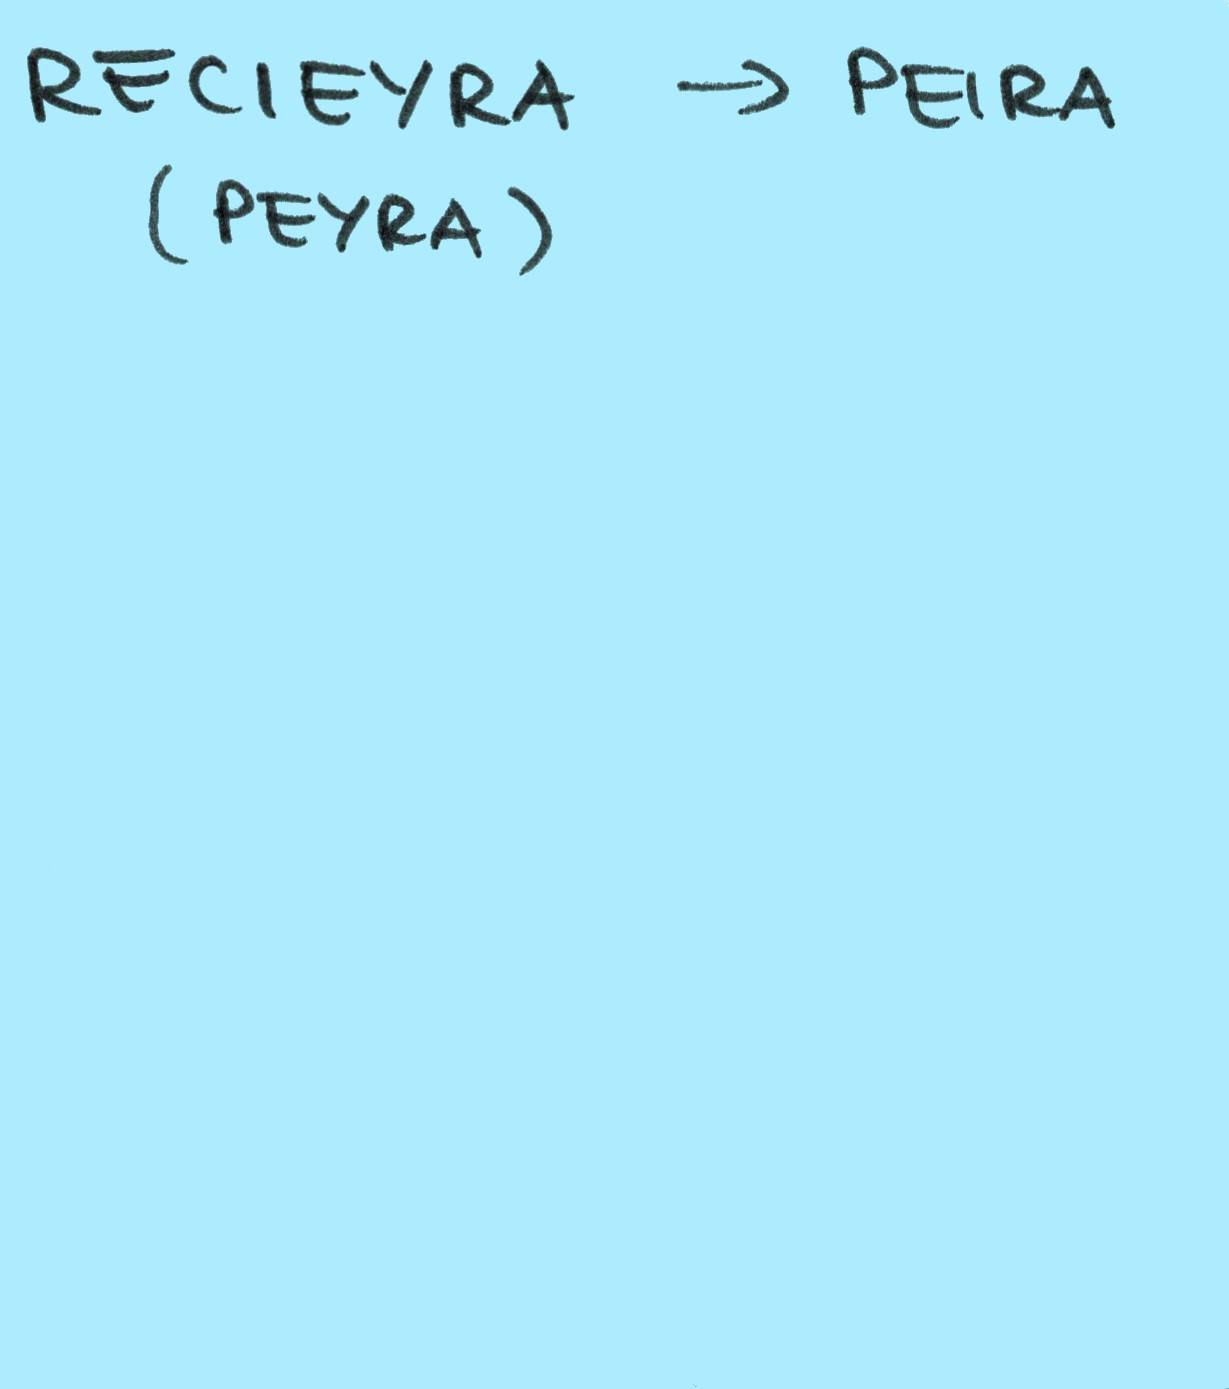 RECIEYRA → PEIRA
(PEYRA)